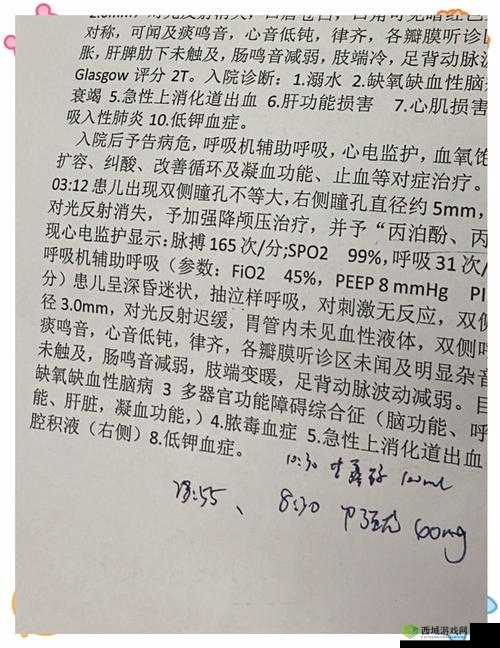 2.0mm，对光反射消失，口唇苍白，口角可见暗红色
对称，可闻及痰鸣音，心音低钝，律齐，各瓣膜听诊区
胀，肝脾肋下未触及，肠鸣音减弱，肢端冷，足背动脉波
Glasgow 评分 2T。入院诊断：1.溺水 2.缺氧缺血性脑
衰竭 5.急性上消化道出血 6.肝功能损害 7.心肌损害
吸入性肺炎 10.低钾血症。
入院后予告病危，呼吸机辅助呼吸，心电监护，血氧饱
扩容、纠酸、改善循环及凝血功能、止血等对症治疗。
03:12 患儿出现双侧瞳孔不等大，右侧瞳孔直径约 5mm，
对光反射消失，予加强降颅压治疗，并予“丙泊酚、丙
现心电监护显示：脉搏 165 次/分;SPO2 99%,呼吸 31 次/
呼吸机辅助呼吸（参数：FiO2 45%，PEEP 8 mmHg PI
分）患儿呈深昏迷状，抽泣样呼吸，对刺激无反应，双侧
径 3.0mm，对光反射迟缓，胃管内未见血性液体，双侧呼
痰鸣音，心音低钝，律齐，各瓣膜听诊区未闻及明显杂音
未触及，肠鸣音减弱，肢端变暖，足背动脉波动减弱。目
缺氧缺血性脑病 3 多器官功能障碍综合征（脑功能、呼
能、肝脏，凝血功能，）4.脓毒血症 5.急性上消化道出血
腔积液（右侧）8.低钾血症。
10:30 甘露醇 100ml
8:30 甲强龙 60mg
西城游戏网